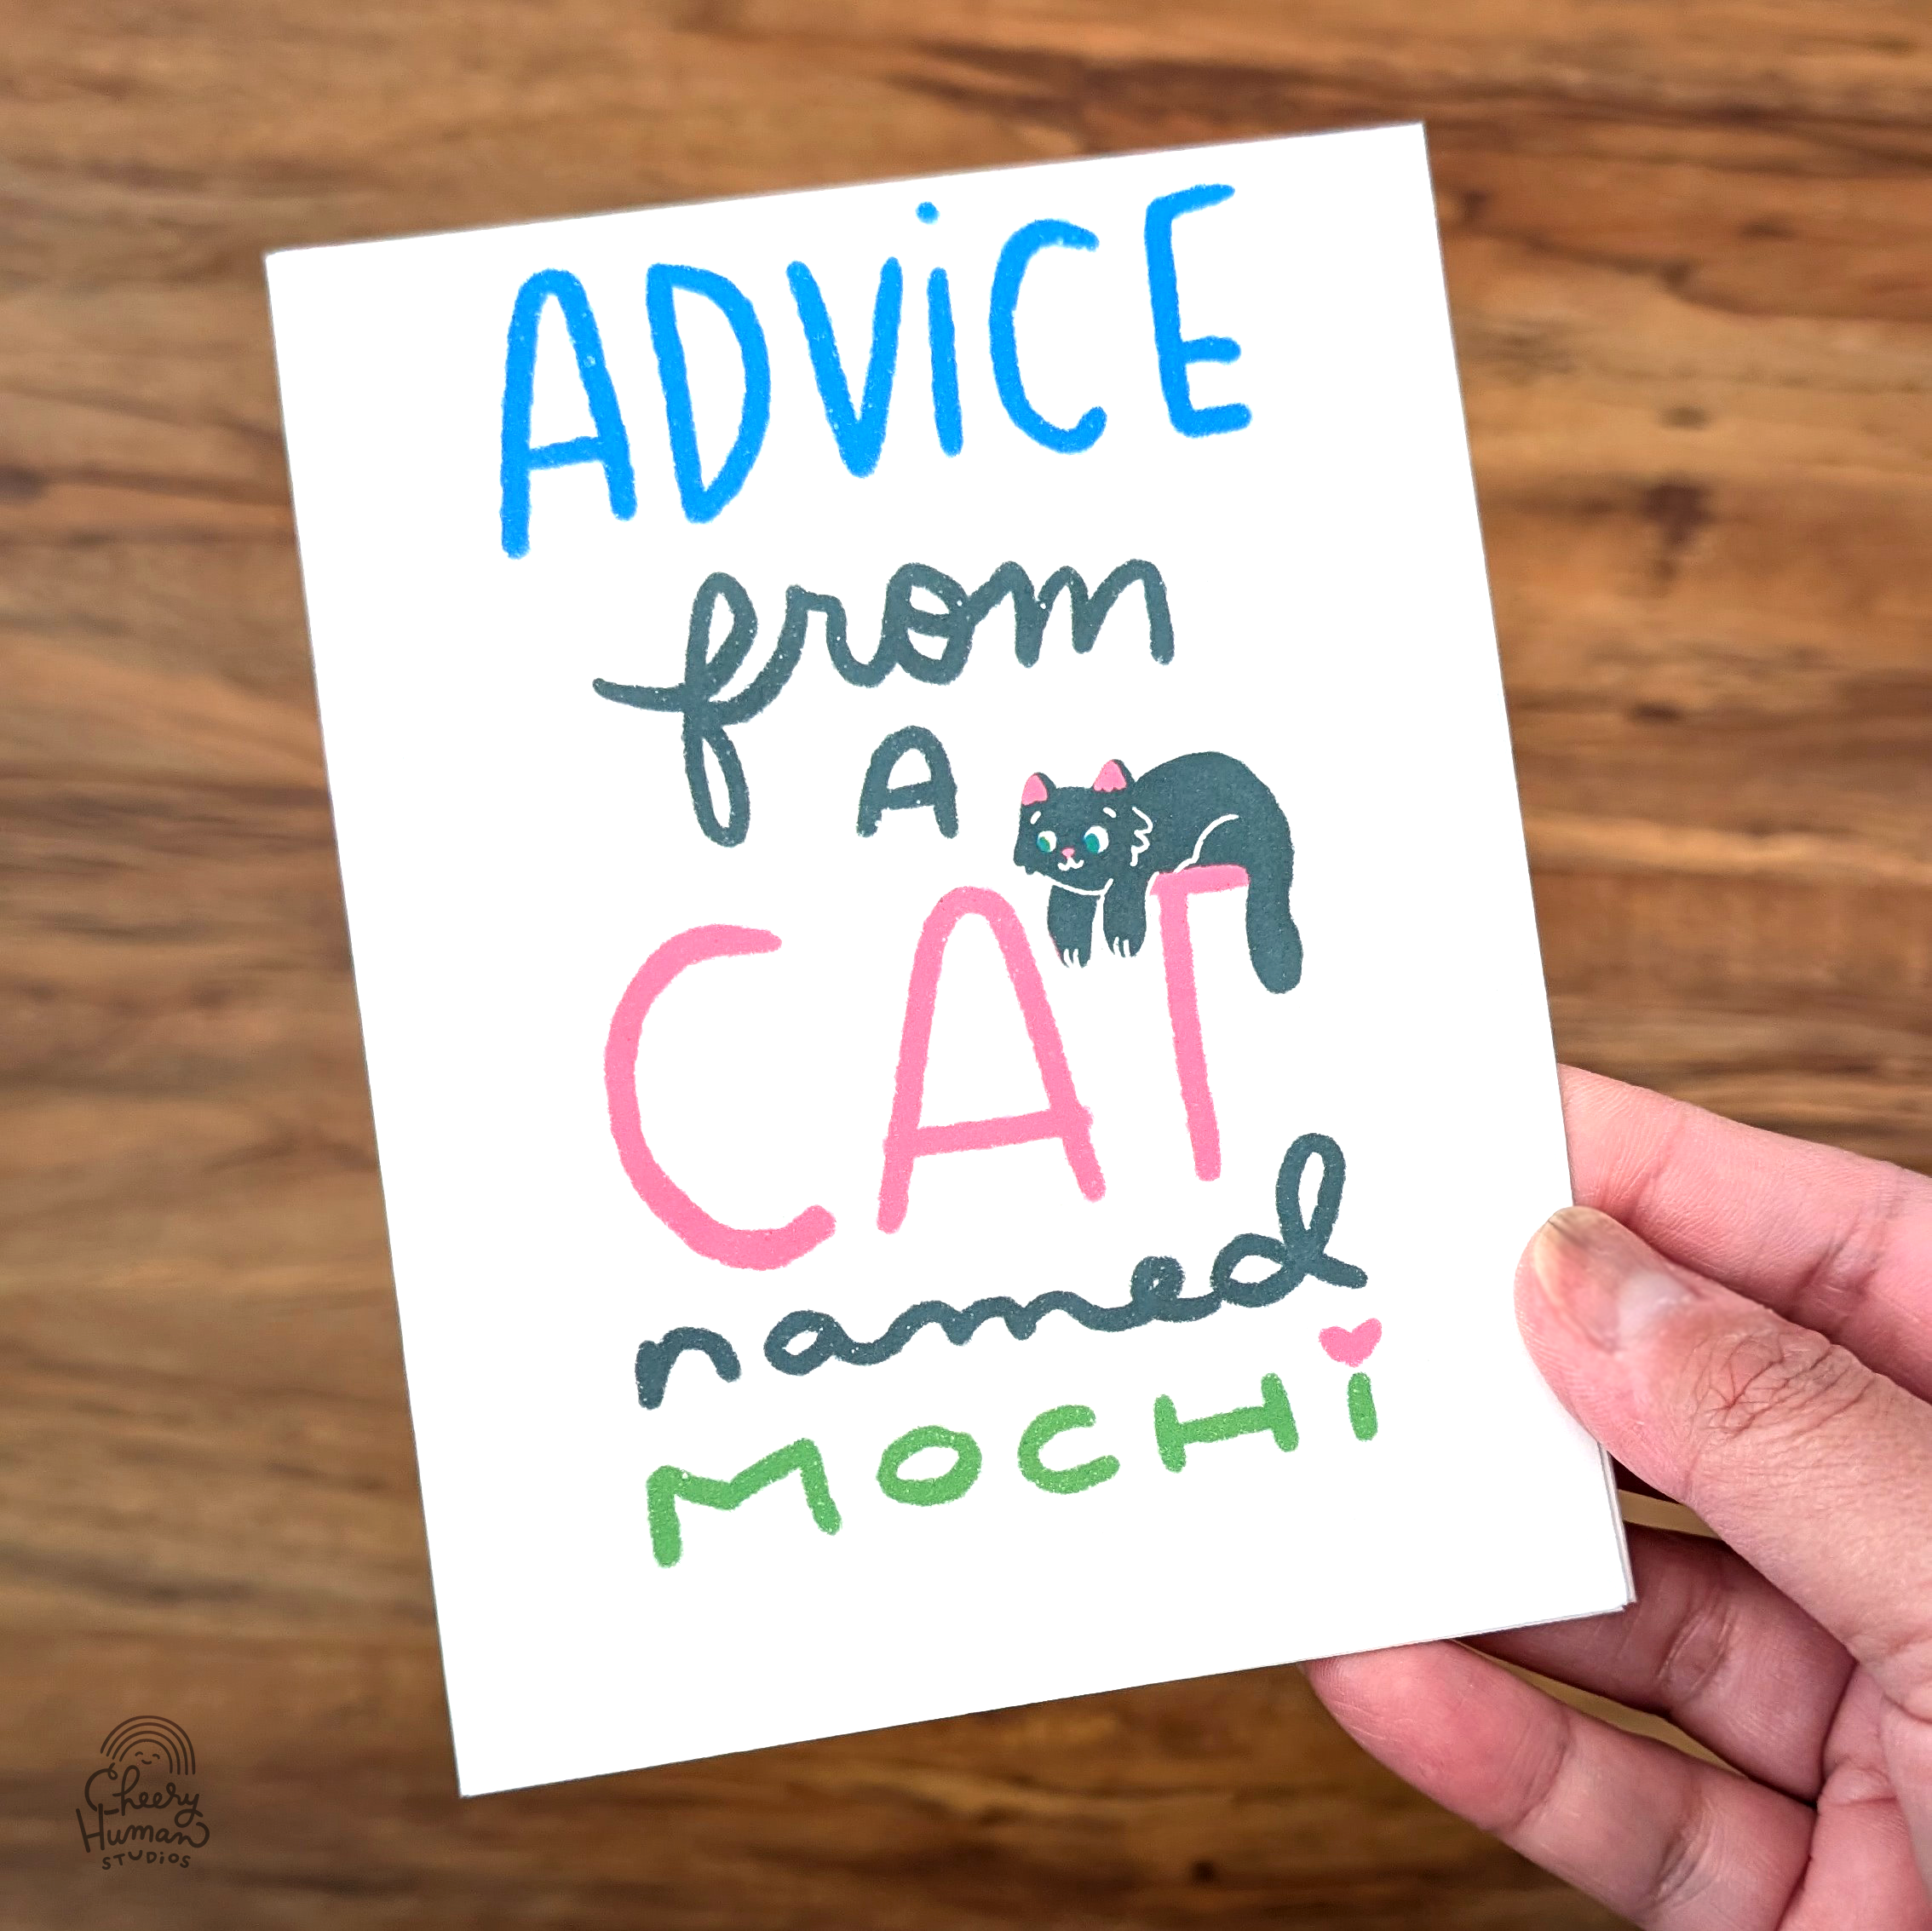 ADViCE
from
A
CAT
named
MOCHi
Cheery
Human
STUDiOS